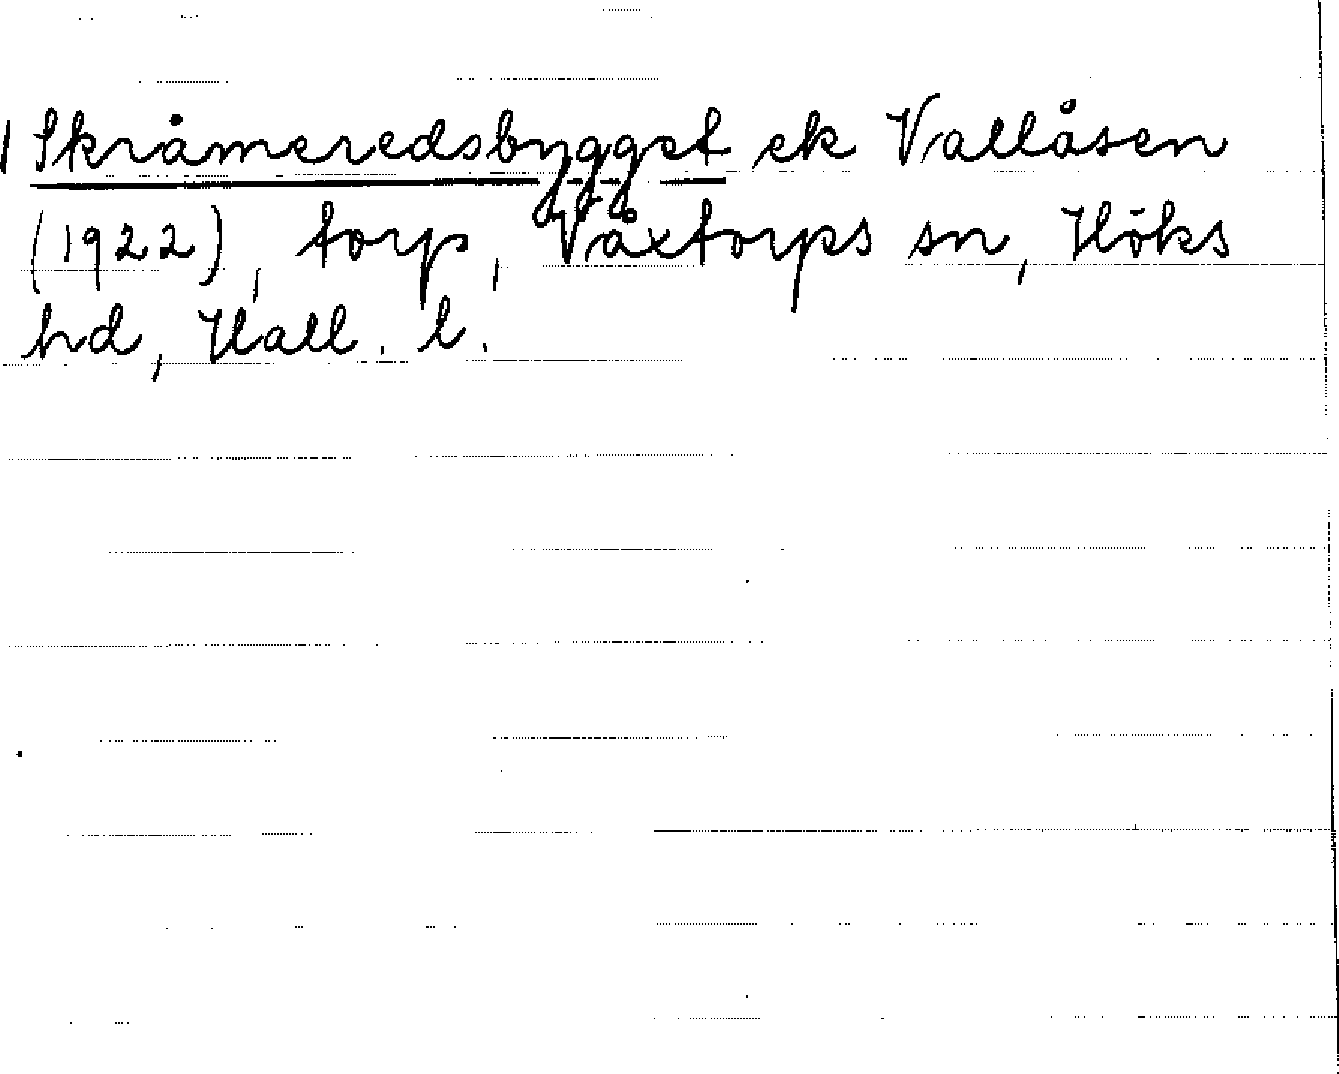 Skråmeredsbygget ek Vallåsen
(1922), torp, Våxtorps sn, Höks
hd, Hall. l.